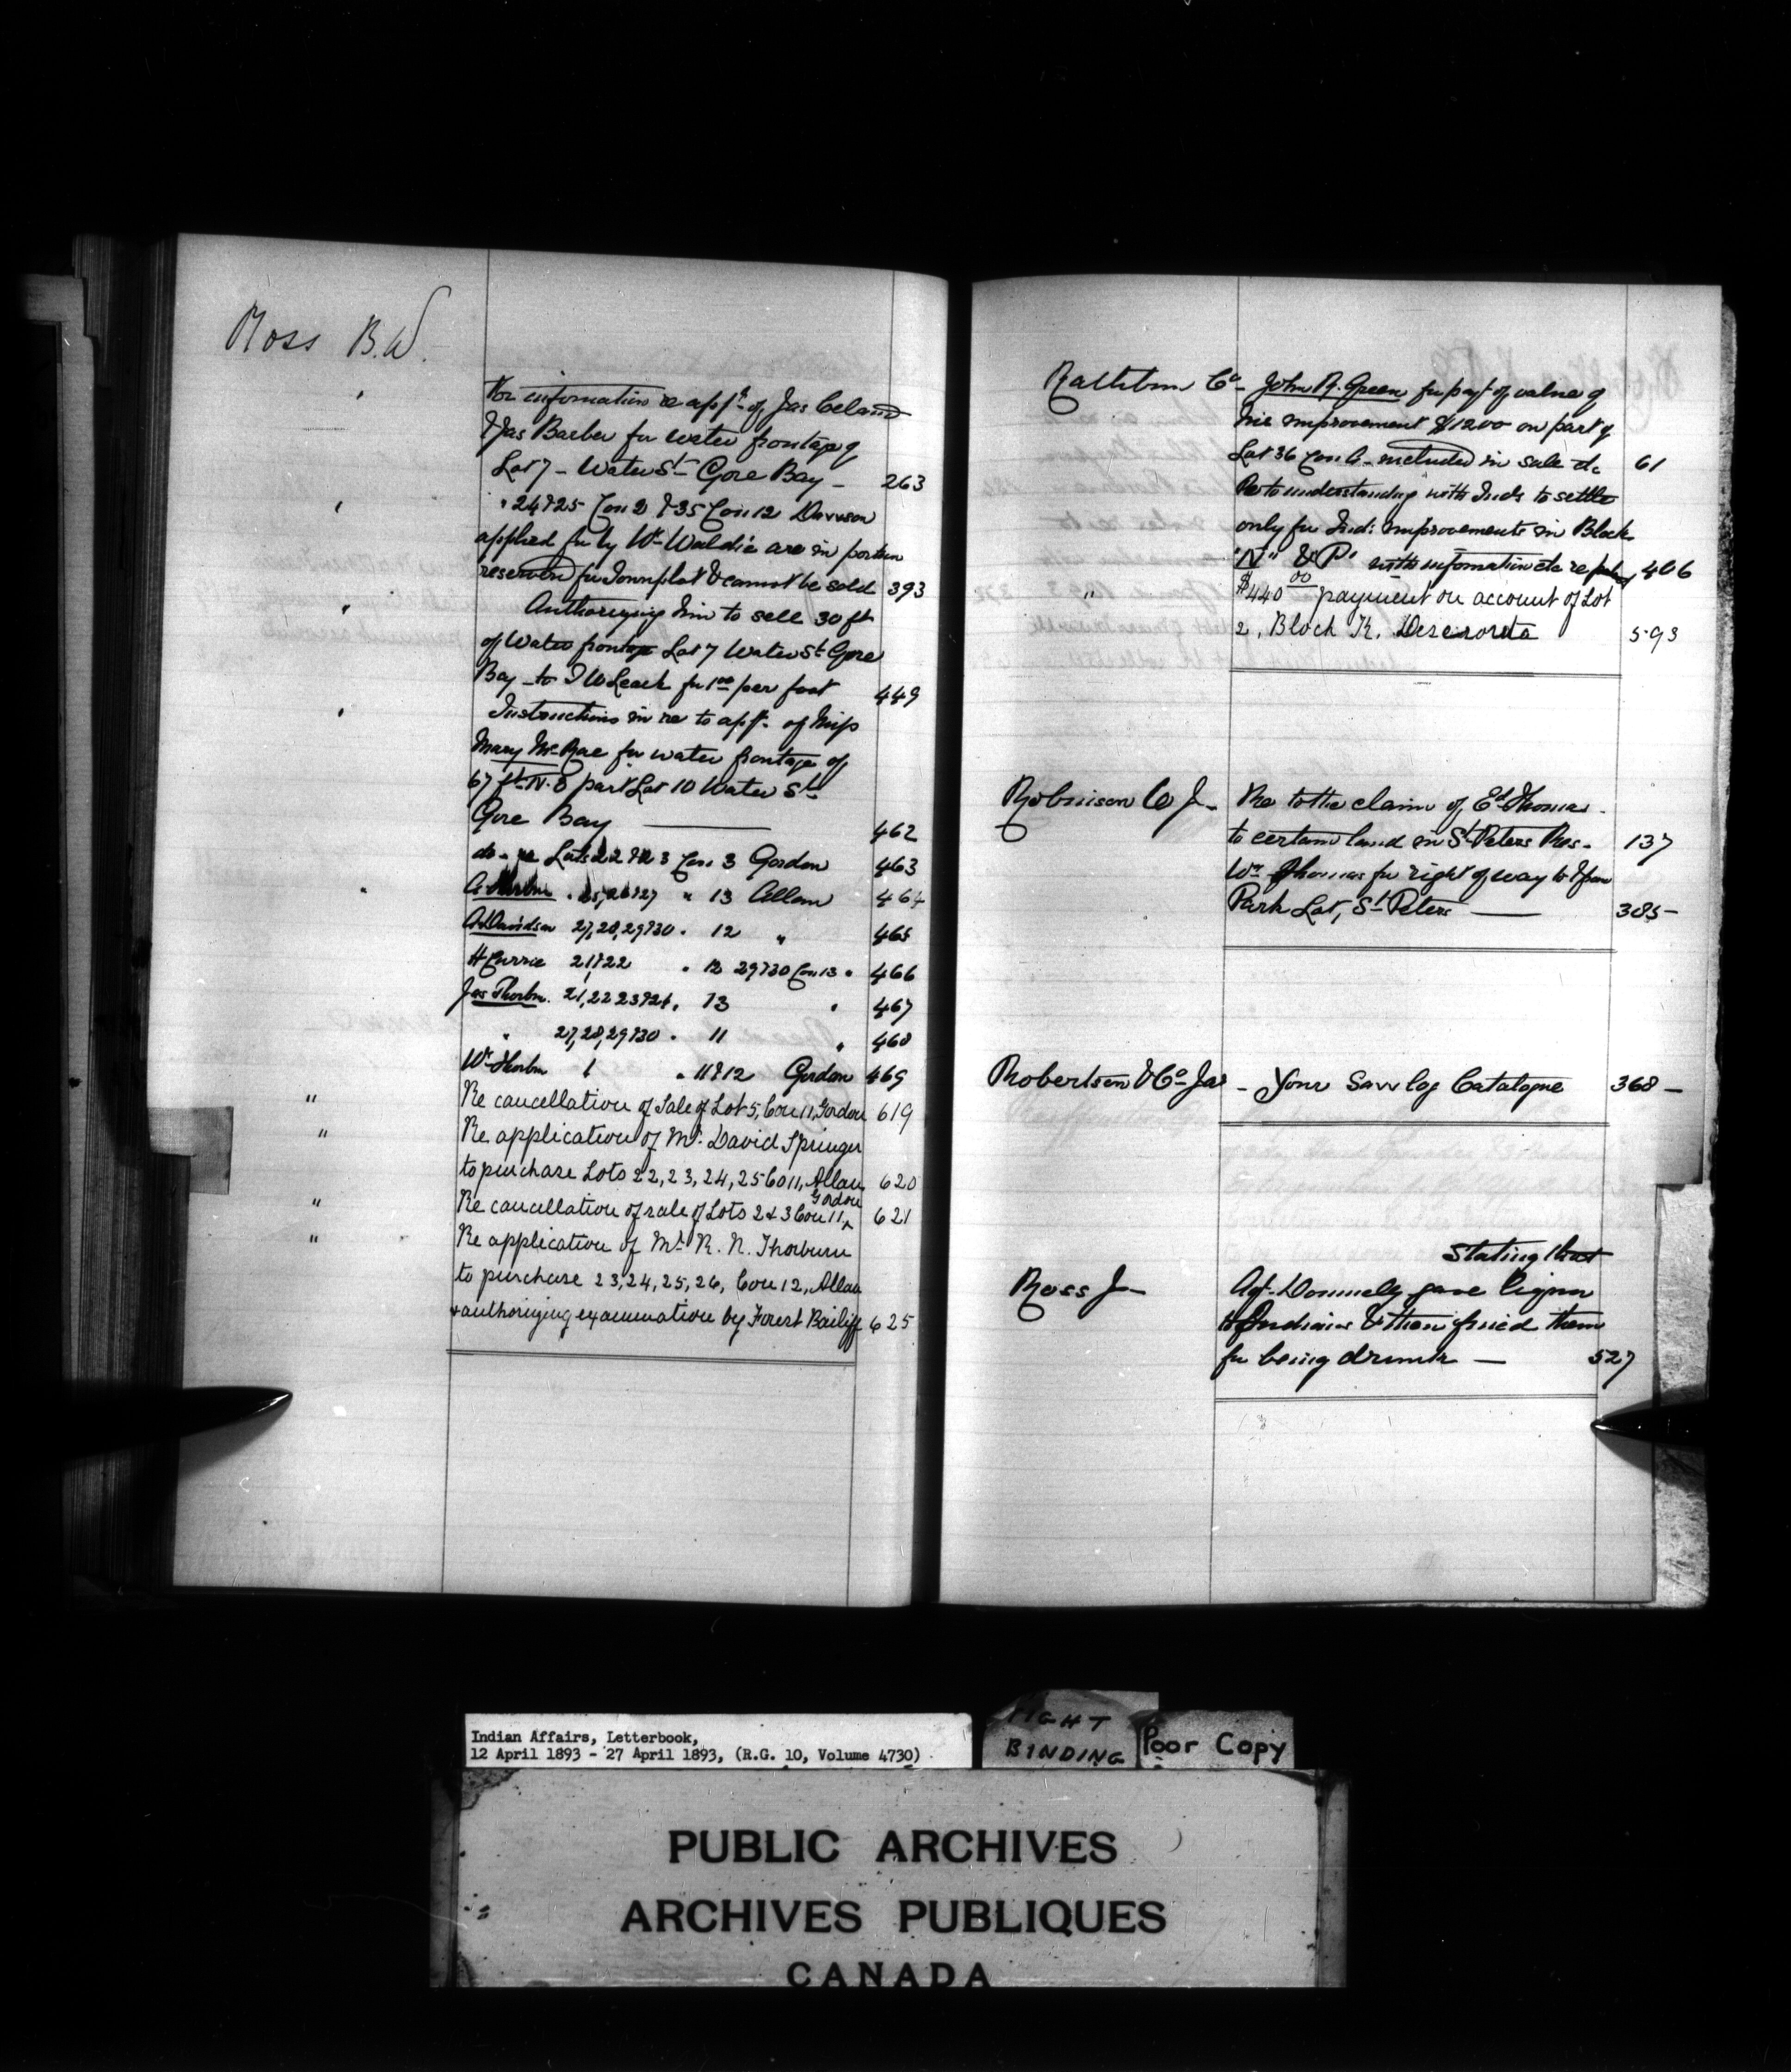 Ross B.W.
For information re appn of Jas Celand
& Jas Barber for water frontage of
Lot 7 - Water St Gore Bay - 263
" 24 & 25 Con 2 & 35 Con 12 Dawson
applied for by Wm Waldie are in portion
reserved for Townplot & cannot be sold 393
Authorizing him to sell 30 ft
of Water frontage Lot 7 Water St Gore
Bay to J W Leach for 1 00 per foot 449
Instructions in re to appn. of Miss
Mary McRae for water frontage of
67 ft N. part Lot 10 Water St
Gore Bay 462
do - re Lots 22 & 23 Con 3 Gordon 463
25, 26 & 27 " 13 Allan 464
A Davidson 27, 28, 29 & 30 " 12 " 465
H Currie 21 & 22 " 12 29 & 30 Con 13 " 466
Jas Thorbn. 21, 22 23 & 24 " 13 " 467
" 27, 28, 29 & 30 " 11 " 468
Wm Thorbn 1 " 11 & 12 Gordon 469
" Re cancellation of Sale of Lot 5, Con 11, Gordon 619
" Re application of Mr. David Springer
to purchase Lots 22, 23, 24, 25 Co 11, Allan 620
Gordon
" Re cancellation of sale of Lots 2 & 3 Con 11, 621
" Re application of Mr. R. N. Thorburn
to purchase 23, 24, 25, 26, Con 12, Allan
& authorizing examination by Forest Bailiff 625
Rathbun Co - John R. Green for payt of value of
his improvement $1200 on part of
Lot 36 Con A - included in sale etc 61
Re to understanding with Inds to settle
only for Ind: improvements in Block
"N" & "P" with information etc 406
" $440 00 payment on account of Lot
2, Block K. Deseronto 593
Robinson J - Re to the claim of Ed Thomas
to certain land in St Peters Res - 137
Wm Thomas for right of way to &
Park Lot, St Peters 385 -
Robertson & Co Jas - Your Saw log Catalogue 368 -
Stating that
Ross J - Agt. Donnelly gave liquor
to Indians & then fined them
for being drunk - 527
Indian Affairs, Letterbook,
12 April 1893 - 27 April 1893, (R.G. 10, Volume 4730)
TIGHT
BINDING
Poor Copy
PUBLIC ARCHIVES
ARCHIVES PUBLIQUES
CANADA